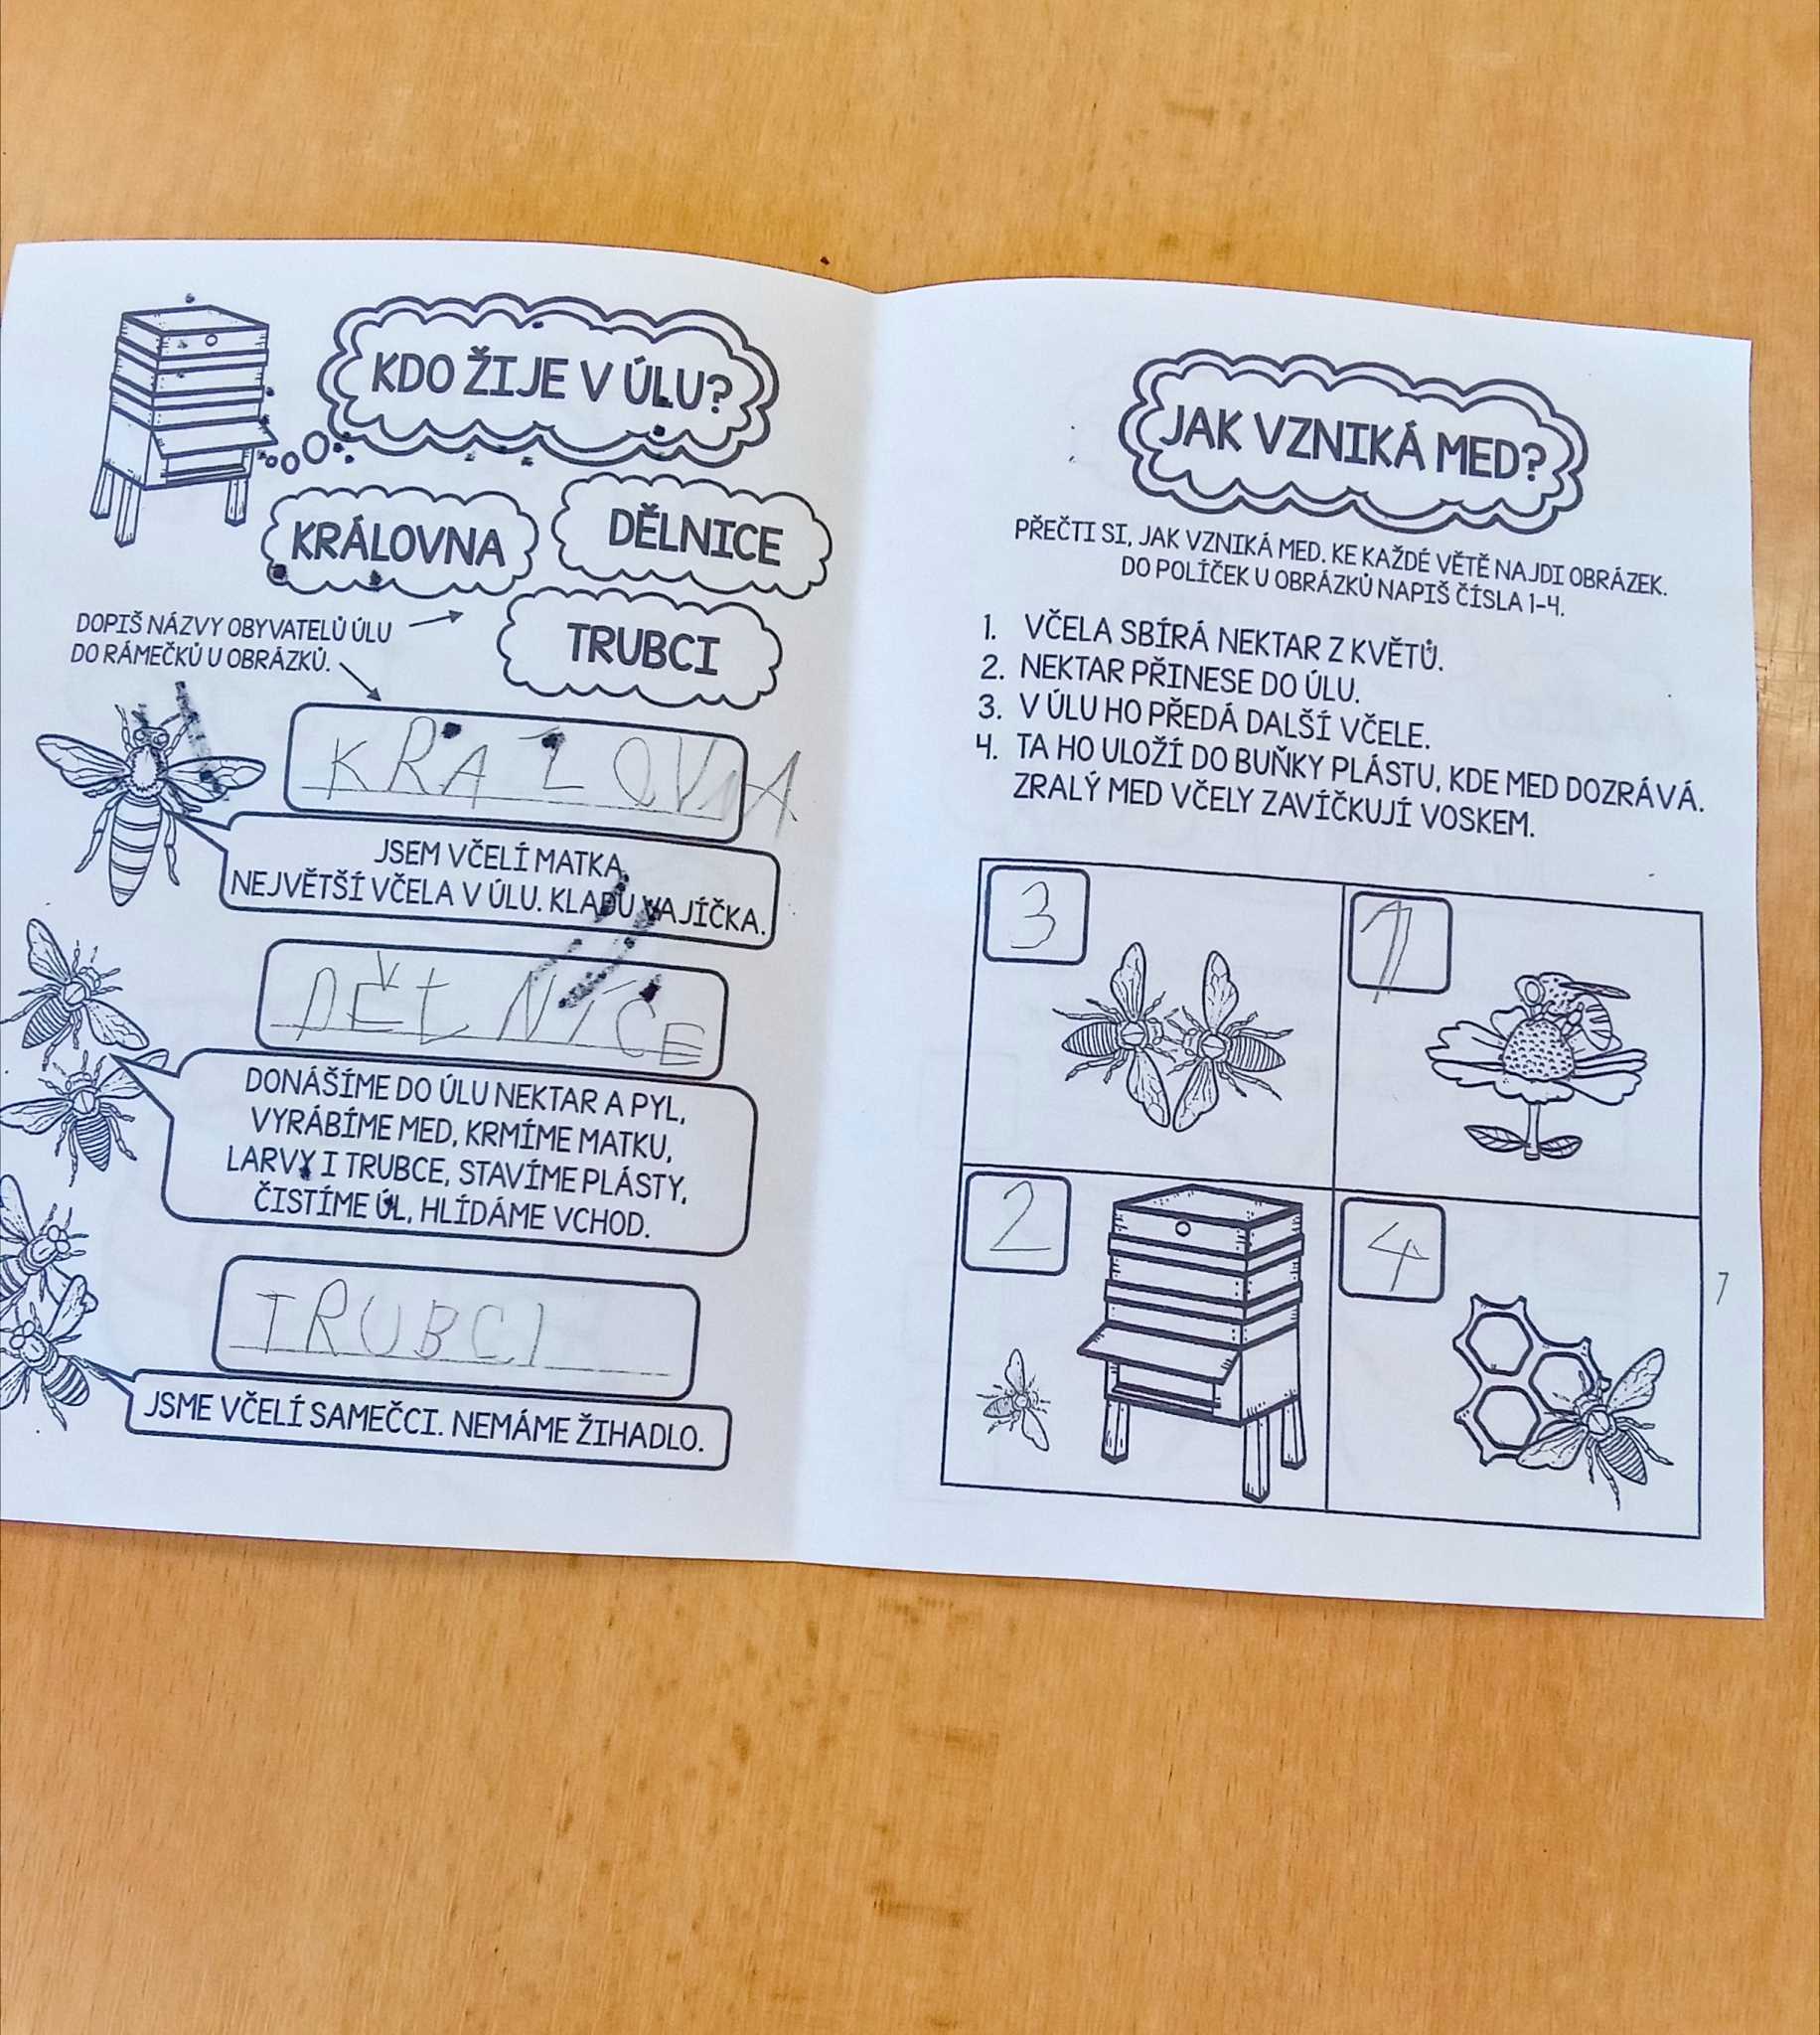 KDO ŽIJE V ÚLU?
KRÁLOVNA
DĚLNICE
TRUBCI
DOPIŠ NÁZVY OBYVATELŮ ÚLU
DO RÁMEČKŮ U OBRÁZKŮ.
KRALOVNA
JSEM VČELÍ MATKA,
NEJVĚTŠÍ VČELA V ÚLU. KLADU VAJÍČKA.
DĚLNICE
DONÁŠÍME DO ÚLU NEKTAR A PYL,
VYRÁBÍME MED, KRMÍME MATKU,
LARVY I TRUBCE, STAVÍME PLÁSTY,
ČISTÍME ÚL, HLÍDÁME VCHOD.
TRUBCI
JSME VČELÍ SAMEČCI. NEMÁME ŽIHADLO.
JAK VZNIKÁ MED?
PŘEČTI SI, JAK VZNIKÁ MED. KE KAŽDÉ VĚTĚ NAJDI OBRÁZEK.
DO POLÍČEK U OBRÁZKŮ NAPIŠ ČÍSLA 1-4.
1. VČELA SBÍRÁ NEKTAR Z KVĚTŮ.
2. NEKTAR PŘINESE DO ÚLU.
3. V ÚLU HO PŘEDÁ DALŠÍ VČELE.
4. TA HO ULOŽÍ DO BUŇKY PLÁSTU, KDE MED DOZRÁVÁ.
ZRALÝ MED VČELY ZAVÍČKUJÍ VOSKEM.
3
1
2
4